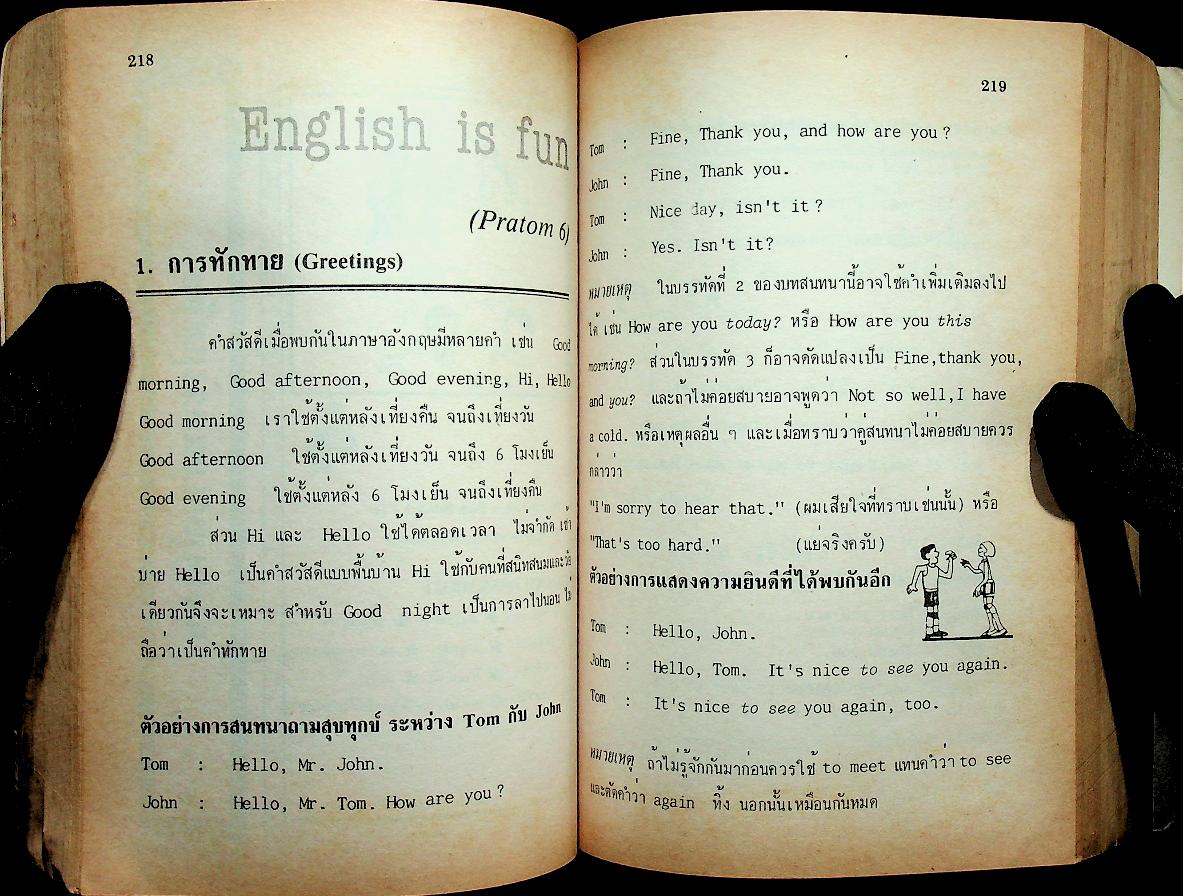 218
English is fun
(Pratom 6)
1. การทักทาย (Greetings)
คำสวัสดีเมื่อพบกันในภาษาอังกฤษมีหลายคำ เช่น Good
morning, Good afternoon, Good evening, Hi, Hello
Good morning เราใช้ตั้งแต่หลังเที่ยงคืน จนถึงเที่ยงวัน
Good afternoon ใช้ตั้งแต่หลังเที่ยงวัน จนถึง 6 โมงเย็น
Good evening ใช้ตั้งแต่หลัง 6 โมงเย็น จนถึงเที่ยงคืน
ส่วน Hi และ Hello ใช้ได้ตลอดเวลา ไม่จำกัด เช้า
บ่าย Hello เป็นคำสวัสดีแบบพื้นบ้าน Hi ใช้กับคนที่สนิทสนมและวัย
เดียวกันจึงจะเหมาะ สำหรับ Good night เป็นการลาไปนอน ไม่
ถือว่าเป็นคำทักทาย
ตัวอย่างการสนทนาถามสุขทุกข์ ระหว่าง Tom กับ John
Tom : Hello, Mr. John.
John : Hello, Mr. Tom. How are you?
219
Tom : Fine, Thank you, and how are you?
John : Fine, Thank you.
Tom : Nice day, isn't it?
John : Yes. Isn't it?
หมายเหตุ ในบรรทัดที่ 2 ของบทสนทนานี้อาจใช้คำเพิ่มเติมลงไป
ได้ เช่น How are you today? หรือ How are you this
morning? ส่วนในบรรทัด 3 ก็อาจดัดแปลงเป็น Fine,thank you,
and you? และถ้าไม่ค่อยสบายอาจพูดว่า Not so well,I have
a cold. หรือเหตุผลอื่น ๆ และเมื่อทราบว่าคู่สนทนาไม่ค่อยสบายควร
กล่าวว่า
"I'm sorry to hear that." (ผมเสียใจที่ทราบเช่นนั้น) หรือ
"That's too hard." (แย่จริงครับ)
ตัวอย่างการแสดงความยินดีที่ได้พบกันอีก
Tom : Hello, John.
John : Hello, Tom. It's nice to see you again.
Tom : It's nice to see you again, too.
หมายเหตุ ถ้าไม่รู้จักกันมาก่อนควรใช้ to meet แทนคำว่า to see
และตัดคำว่า again ทิ้ง นอกนั้นเหมือนกันหมด